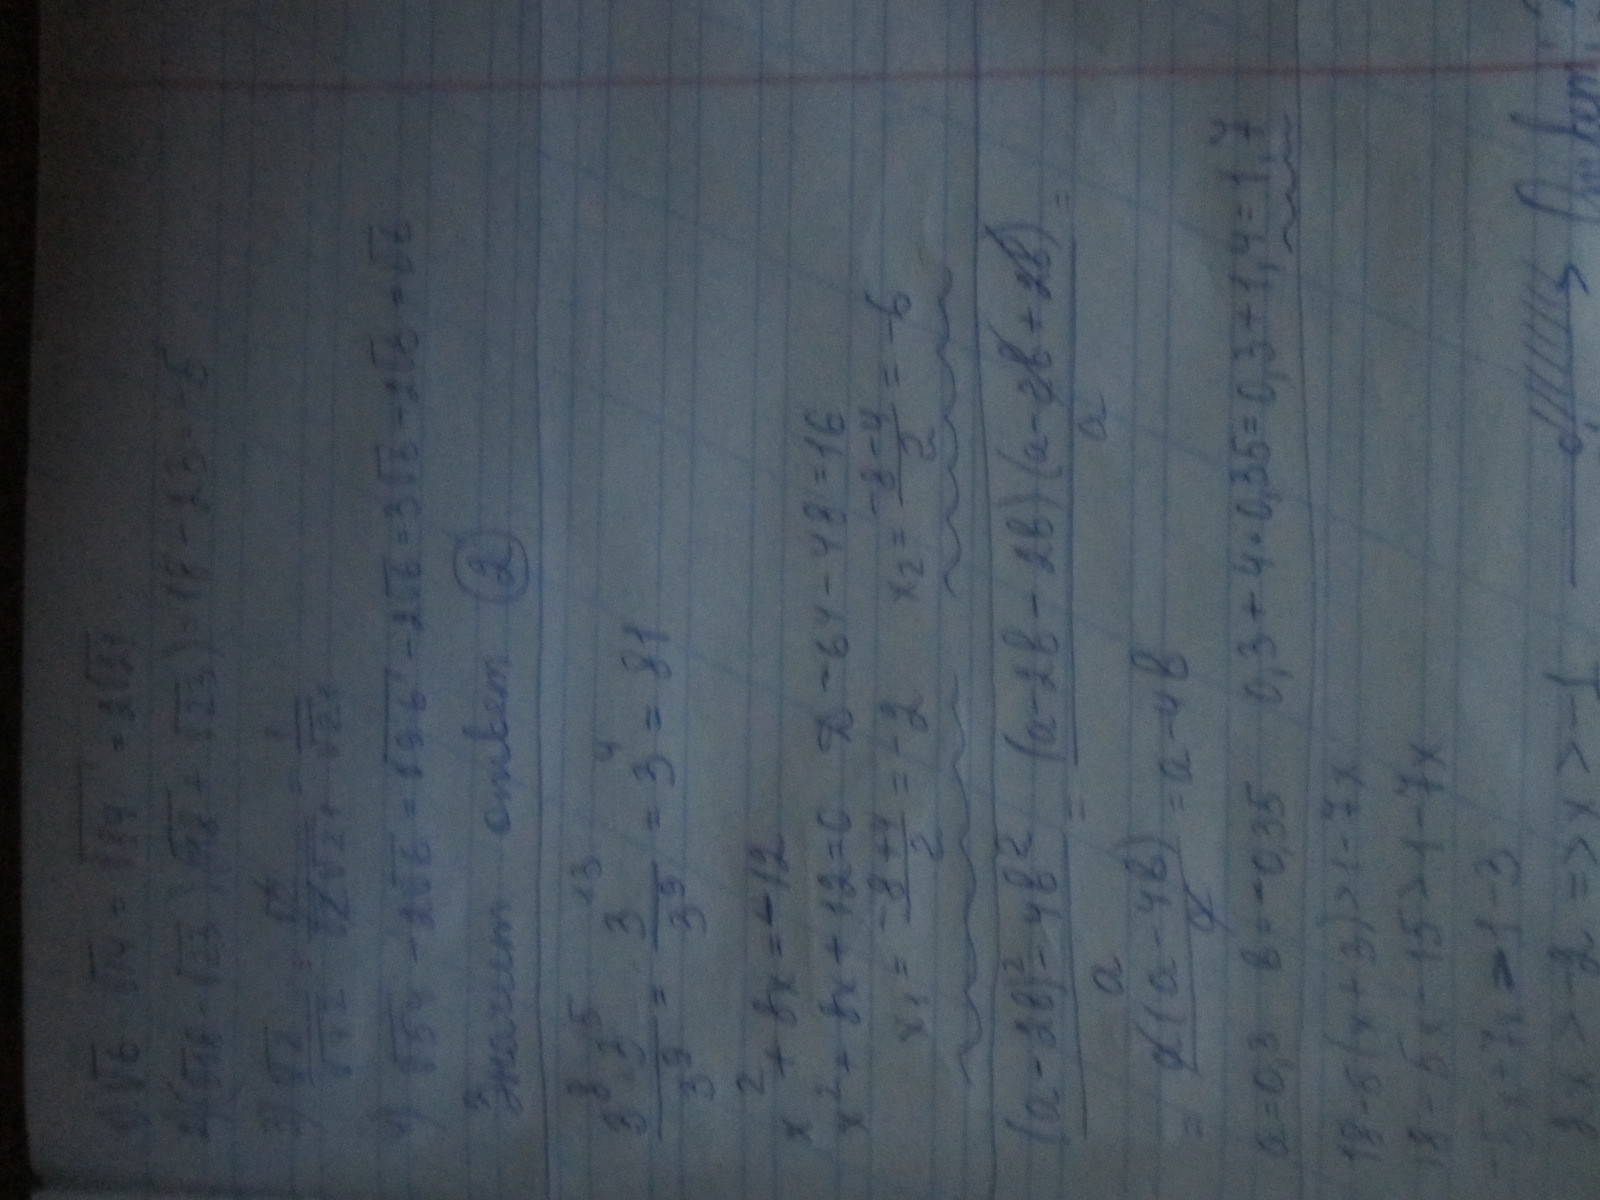 1) √6·√14 = √84 = 2√21
2) (√18-√23)(√18+√23) = 18-23 = -5
4) √54 - 2√6 = √9·6 - 2√6 = 3√6 - 2√6 = √6
Значит ответ 2
3⁸·3⁵/3⁹ = 3¹³/3⁹ = 3⁴ = 81
x² + 8x = -12
x² + 8x + 12 = 0 D = 64 - 48 = 16
x₁ = (-8+4)/2 = -2 x₂ = (-8-4)/2 = -6
((a-2b)²-4b²)/a = ((a-2b-2b)(a-2b+2b))/a =
= a(a-4b)/a = a-4b
a=0,3 b=-0,35 0,3+4·0,35=0,3+1,4=1,7
18-5(x+3)>1-7x
18-5x-15>1-7x
-5x+7x>1-3
2x>-2 => x>-1